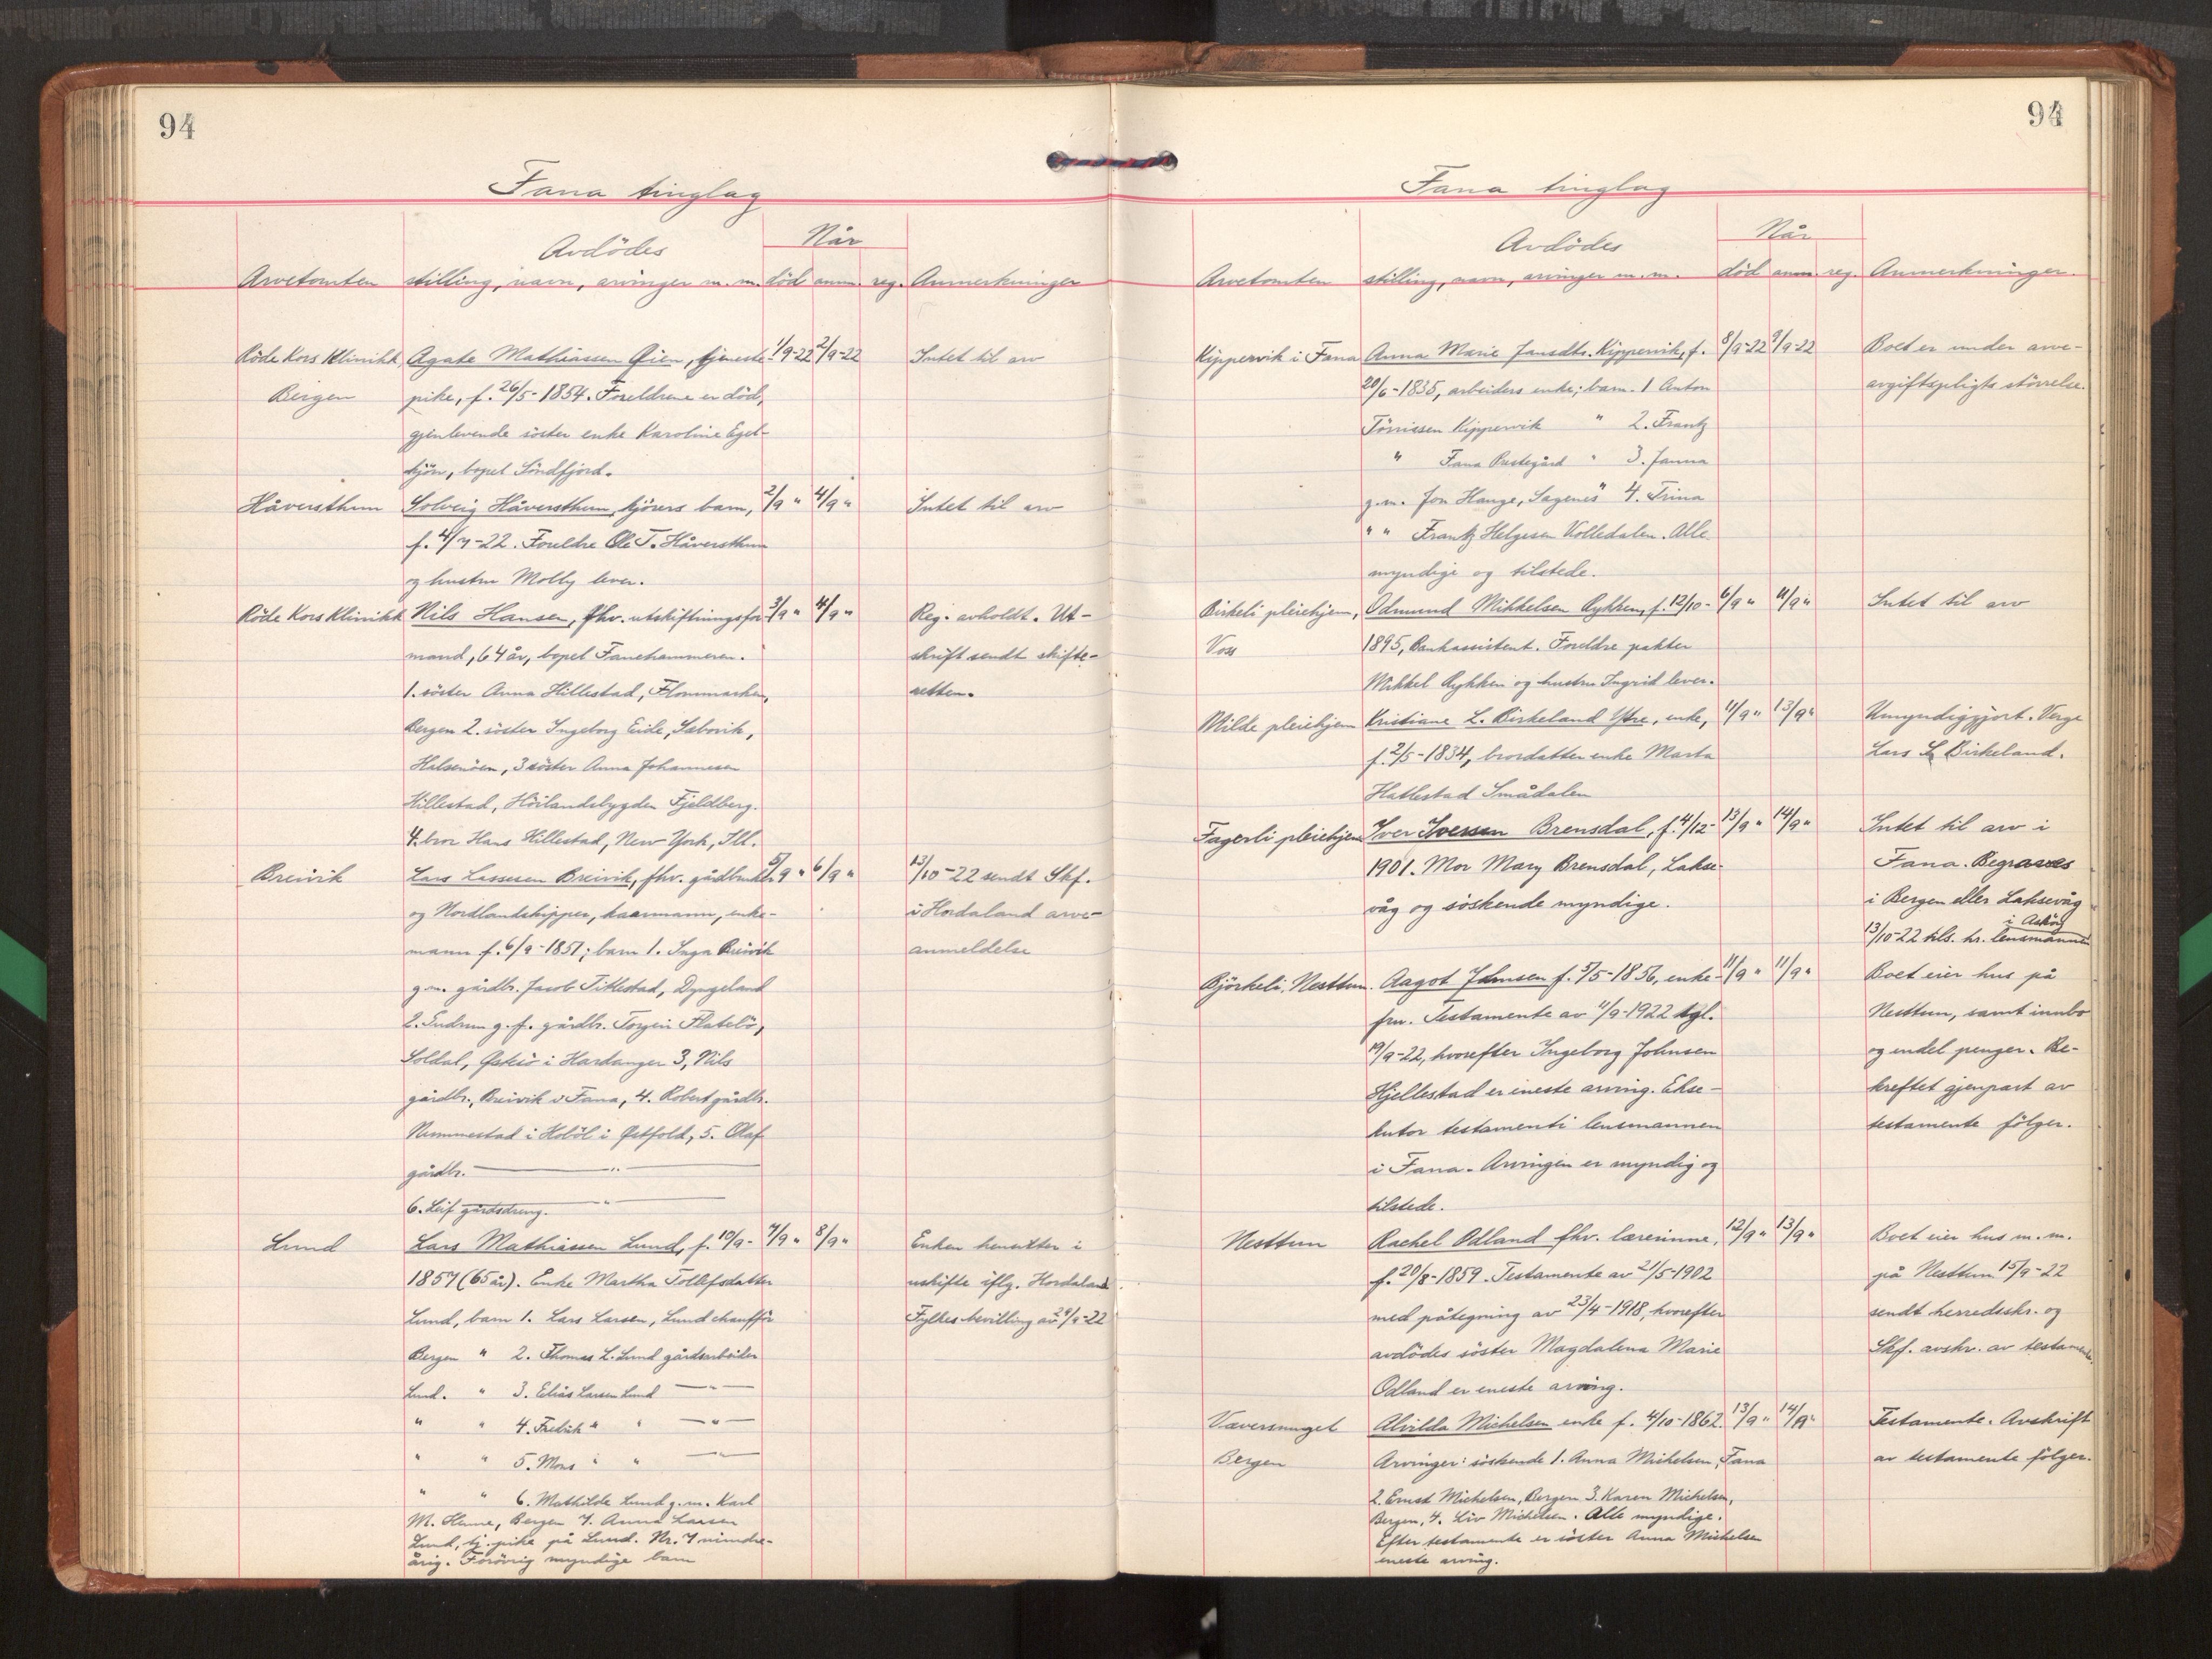 94
Fana tinglag
Når
Avdödes
Arvetomten stilling, navn, arvinger m. m. död anm. reg. Anmerkninger
Röde Kors Klinikk, Agate Mathiassen Öien, tjeneste- 1/9-22 2/9-22 Intet til arv
Bergen pike, f. 26/5-1854. Foreldrene er död,
gjenlevende söster enke Karoline Eget-
bopel Söndfjord.
Håversthun Solveig Håversthun, kjörers barn, 2/9 " 4/9 " Intet til arv
f. 4/7-22. Foreldre Ole T. Håversthun
og hustru Molly lever.
Röde Kors Klinikk Nils Hansen, fhv. utskiftningsfor- 3/9 " 4/9 " Reg. avholdt. Ut-
mand, 64 år, bopel Fanehammeren. skrift sendt skifte-
1. söster Anna Hillestad, retten.
Bergen 2. söster Ingeborg Eide, Sabovik,
Halsenöen, 3 söster Anna Johannesen
Hillestad, Höilandsbygden Fjeldberg.
4. bror Hans Hillestad, New-York, Ill.
Breivik Lars Lassesen Breivik, fhv. gårdbruker 5/9 " 6/9 " 13/10-22 sendt Skf.
og Nordlandskipper, kaarmann, enke- i Hordaland arve-
mann f. 6/9-1851; barn 1. Inga Breivik anmeldelse
g.m. gårdbr. Jacob Tittlestad, Dyngeland
2. Gudrun g.f. gårdbr. Torgeir Flatebö,
Soldal, i Hardanger 3, Nils
gårdbr., Breivik i Fana, 4. Robert gårdbr.
i Hobøl i Østfold, 5. Olaf
gårdbr. — " —
6. Leif gårdsdreng. — " —
Lund Lars Mathiassen Lund, f. 10/9- 7/9 " 8/9 " Enken hensitter i
1857 (65 år). Enke Martha Tollefsdatter uskifte iflg. Hordaland
Lund, barn 1. Lars Larsen, Lund chaufför Fylkes bevilling av 29/9-22
Bergen " 2. Thomas L. Lund gårdsarbeider
Lund. " 3. Elias Larsen Lund — " —
" " 4. Fredrik " " — " —
" " 5. Mons " " — " —
" " 6. Mathilde Lund g.m. Karl
M. Bergen 7. Anna Larsen
Lund, tj. pike på Lund. Nr. 7 mindre-
årig. Forövrig myndige barn
94
Fana tinglag
Når
Avdödes
Arvetomten stilling, navn, arvinger m. m. död anm. reg. Anmerkninger.
Kippervik i Fana Anna Marie Jansdtr. Kippervik, f. 8/9-22 9/9-22 Boet er under arve-
20/6-1835, arbeiders enke; barn. 1. Anton avgiftspligts störrelse.
Tönnissen Kippervik " 2. Frantz
" Fana Prestegård " 3. Janna
g.m. Jon Hauge, Sagenes " 4. Trina
" " Frantz Helgesen Volledalen. Alle
myndige og tilstede.
Birkeli pleiehjem, Odmund Mikkelsen Rykken, f. 12/10- 6/9 " 11/9 " Intet til arv
Voss 1895, Bankassistent. Foreldre pakter
Mikkel Rykken og hustru Ingrid lever.
Milde pleiehjem Kristiane L. Birkeland Ytre, enke, 11/9 " 13/9 " Umyndiggjort. Verge
f. 2/5-1834, brordatter enke Marta Lars L Birkeland.
Hatlestad Smådalen
Fagerli pleiehjem Iver Ivessen Brensdal, f. 4/12- 13/9 " 14/9 " Intet til arv i
1901. Mor Mary Brensdal, Lakse- Fana. Begraves
våg og söskende myndige. i Bergen eller Laksevåg
i Asköy
13/10-22 tils. hr. lensmannen
Björkeli, Nesttun. Aagot Johnsen f. 5/5-1856, enke- 11/9 " 11/9 " Boet eier hus på
fru. Testamente av 11/9-1922 tgl. Nesttun, samt innbo
19/9-22, hvorefter Ingeborg Johnsen og endel penger. Be-
Hjellestad er eneste arving. Ekse- kreftet gjenpart av
kutor testamenti lensmannen testamente fölger.
i Fana. Arvingen er myndig og
tilstede.
Nesttun Rachel Odland fhv. lærerinne, 12/9 " 13/9 " Boet eier hus m. m.
f. 20/8-1859. Testamente av 21/5-1902 på Nesttun 15/9-22
med påtegning av 23/4-1918, hvorefter sendt herredsskr. og
avdödes söster Magdalena Marie Skf. avskr. av testamente.
Odland er eneste arving.
Væversmuget Alvilda Michelsen enke f. 4/10-1862. 13/9 " 14/9 " Testamente. Avskrift
Bergen Arvinger: söskende 1. Anna Michelsen, Fana av testamente fölger.
2. Ernst Michelsen, Bergen 3. Karen Michelsen,
Bergen, 4. Liv Michelsen. Alle myndige.
Efter testamente er söster Anna Michelsen
eneste arving.